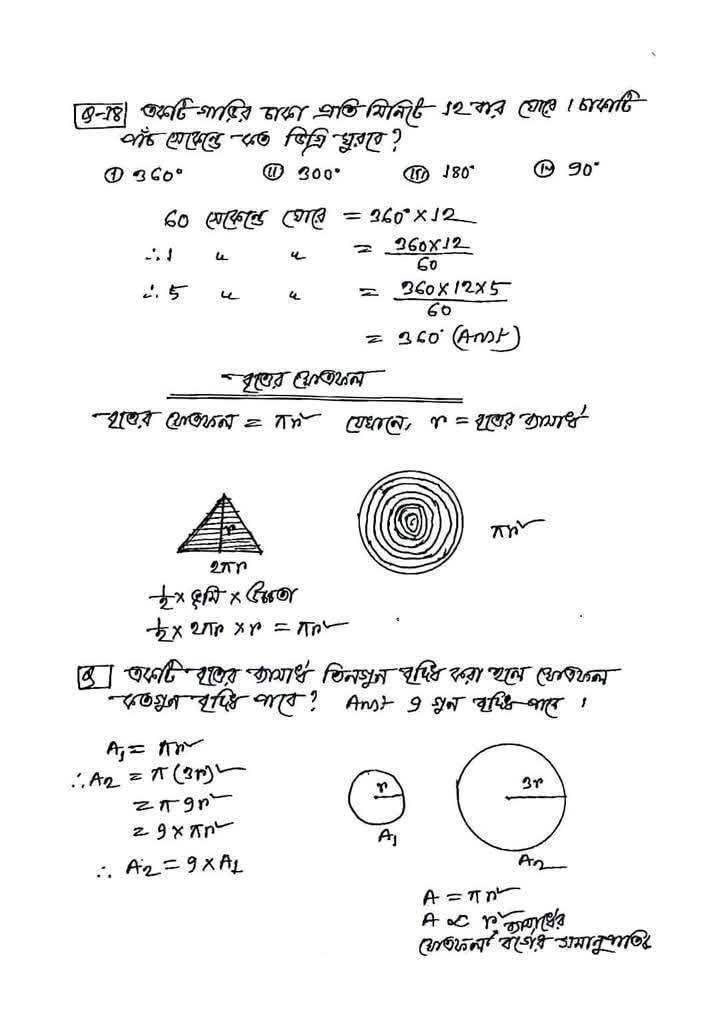 Q-18 একটি গাড়ির চাকা প্রতি মিনিটে 12 বার ঘোরে। চাকাটি
পাঁচ সেকেন্ডে কত ডিগ্রি ঘুরবে?
(i) 360° (ii) 300° (iii) 180° (iv) 90°
60 সেকেন্ডে ঘোরে = 360° × 12
∴ 1 " " = 360×12/60
∴ 5 " " = 360×12×5/60
= 360° (Ans)
বৃত্তের ক্ষেত্রফল
বৃত্তের ক্ষেত্রফল = πr² যেখানে, r = বৃত্তের ব্যাসার্ধ
r
2πr
πr²
½ × ভূমি × উচ্চতা
½ × 2πr × r = πr²
Q একটি বৃত্তের ব্যাসার্ধ তিনগুন বৃদ্ধি করা হলে ক্ষেত্রফল
কতগুন বৃদ্ধি পাবে? Ans 9 গুন বৃদ্ধি পাবে।
A₁ = πr²
∴ A₂ = π(3r)²
= π9r²
= 9×πr²
∴ A₂ = 9×A₁
r
A₁
3r
A₂
A = πr²
A ∝ r² ব্যাসার্ধের
ক্ষেত্রফল বর্গের সমানুপাতিক